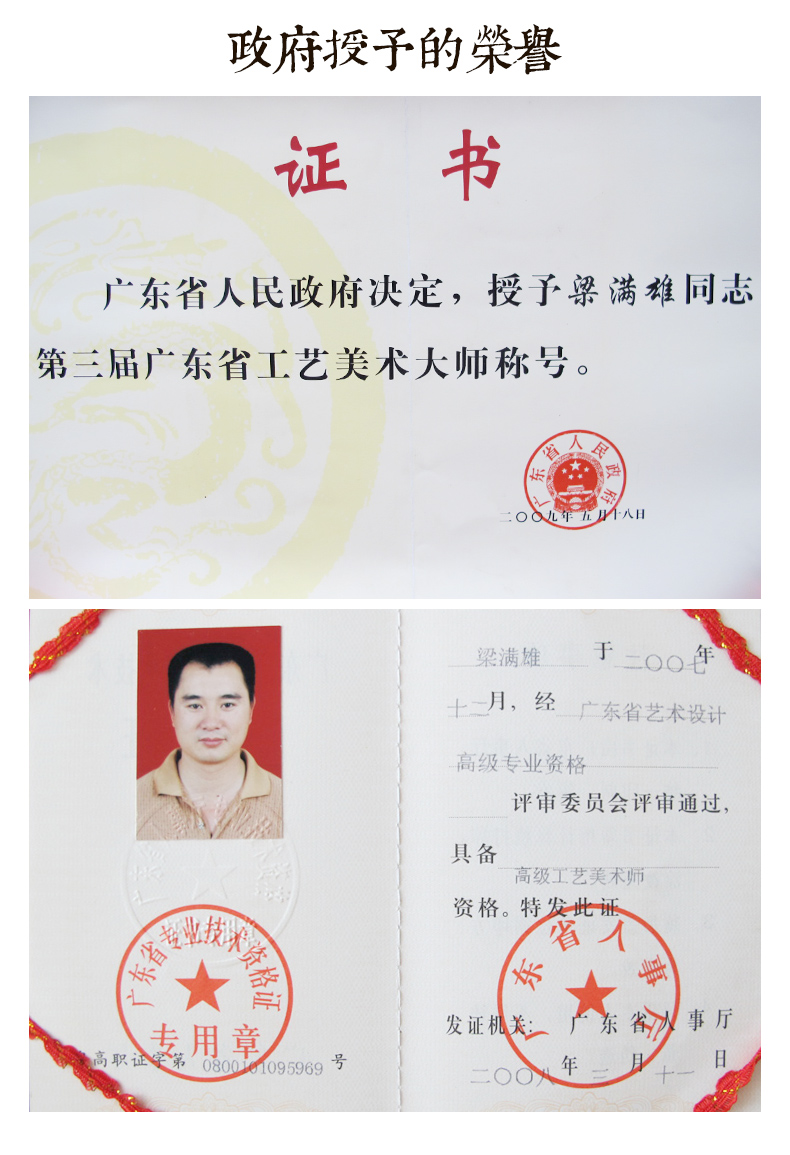 政府授予的榮譽
证 书
广东省人民政府决定，授予梁满雄同志
第三届广东省工艺美术大师称号。
广东省人民政府
二〇〇九年五月十八日
梁满雄 于 二〇〇七年
十二月，经 广东省艺术设计
高级专业资格
评审委员会评审通过，
具备
高级工艺美术师
资格。特发此证
广东省人事厅
发证机关: 广东省人事厅
二〇〇八年三月十一日
广东省专业技术资格证
专用章
高职证字第 0800101095969 号